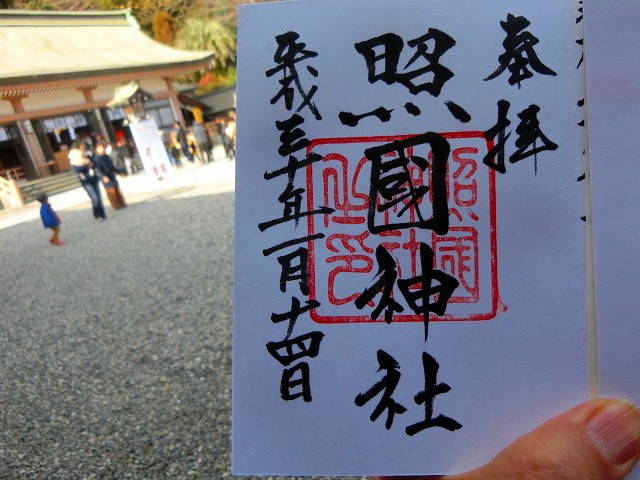 奉拝
照國神社
平成三十年一月十四日